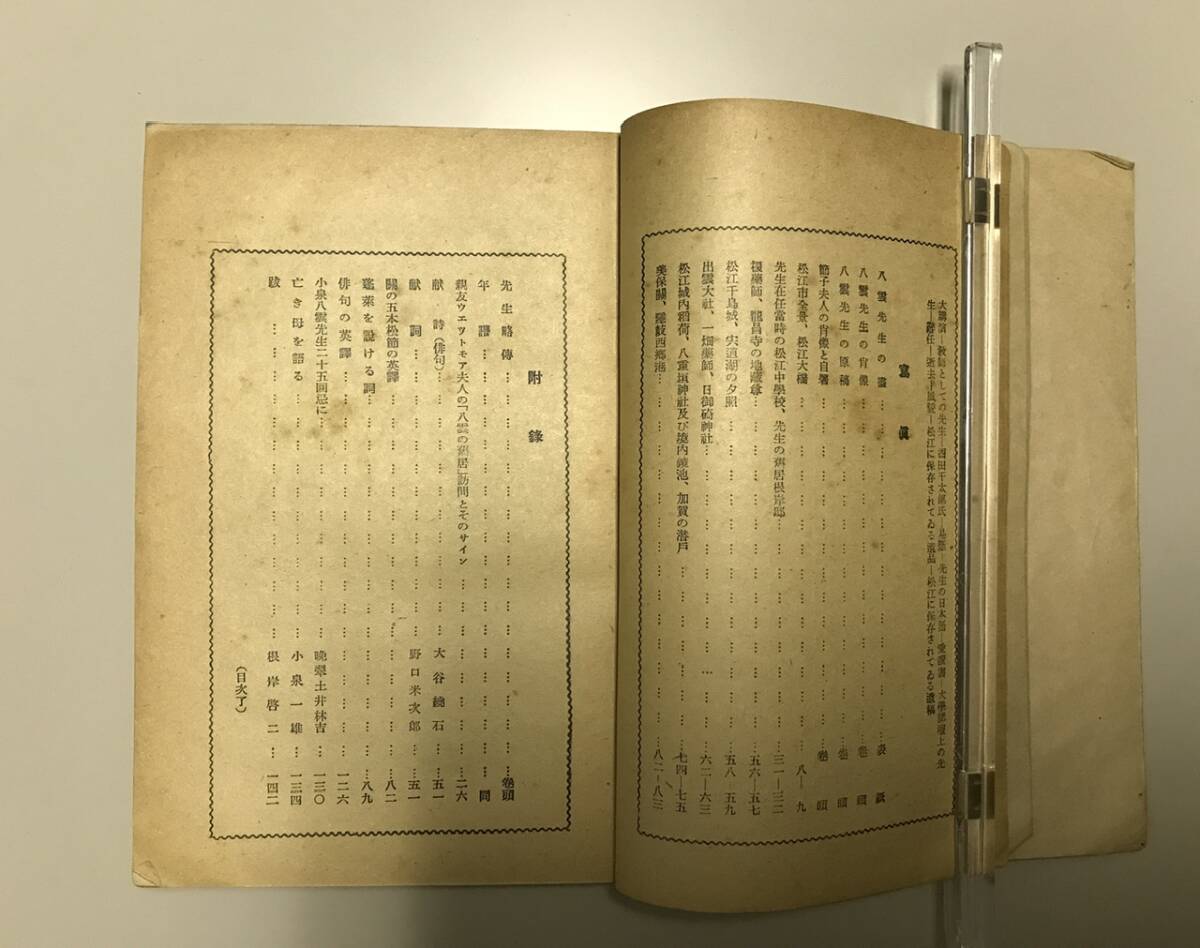 大講演—教師としての先生—西田千太郎氏—先生の日本
生—辭任—逝去—松江に保存されてゐる遺品—松江に保存されてゐる遺稿
寫眞
八雲先生の書……表紙
八雲先生の肖像……卷頭
八雲先生の原稿……卷頭
節子夫人の肖像と自署……卷頭
松江市全景、松江大橋……八—九
先生在任當時の松江中學校、先生の舊居根岸邸……三一—三二
藥師、龍昌寺の地藏尊……五六—五七
松江千鳥城、宍道湖の夕照……五八—五九
出雲大社、一畑藥師、日御碕神社……六二—六三
松江城内稻荷、八重垣神社及び境内鏡池、加賀の潜戸……七四—七五
美保關、隱岐西鄕港……八二—八三
附錄
先生略傳……卷頭
年譜……同
親友ウエツトモア夫人の「八雲の舊居」訪問とそのサイン……二六
献詩(俳句)……大谷繞石……五一
献詞……野口米次郎……五一
關の五本松節の英譯……八二
蓬萊を說ける詞……八九
俳句の英譯……一二六
小泉八雲先生二十五回忌に……晩翠土井林吉……一三〇
亡き母を語る……小泉一雄……一三四
跋……根岸啓二……一四二
(目次了)